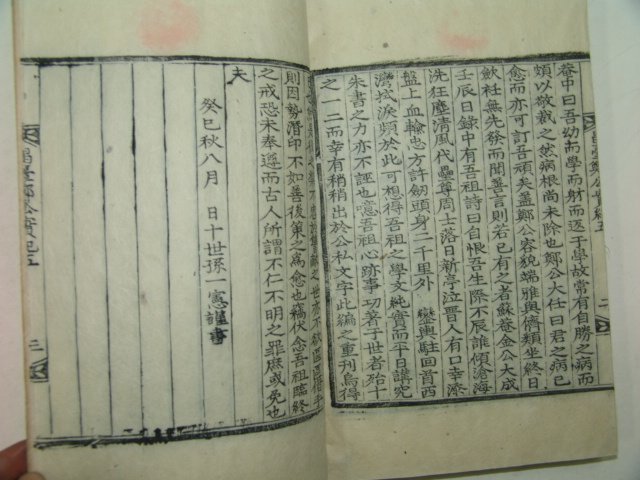 菴中曰吾幼而學而射而返于學故常有自勝之病而
頗以敬裁之然病根尚未除也鄭公大任曰君之病已
愈而亦可訂吾頑矣盖鄭公容貌端雅與儕類坐終日
斂袵無先發而聞善言則若已有之者蘇菴金公大成
壬辰日錄中有五祖詩曰自恨吾生際不辰誰傾滄海
洗狂塵清風代壘尊周士落日新亭泣晉人有口幸添
盤上血輸忠方許劒頭身二千里外 鑾輿駐回首西
灣拭淚頻於此可想得吾祖之學文純實而平日講究
朱書之力亦不誣也噫吾祖心跡事功著于世者始十
之一二而幸有稍稍出於公私文字此編之重刊烏得
則因勢潛印不如善後策之爲愈也竊伏念吾祖臨終
之戒恐未奉遵而古人所謂不仁不明之罪庶或免也
夫
癸巳秋八月 日十世孫一憲謹書
昌臺鄭公實紀五
二
三